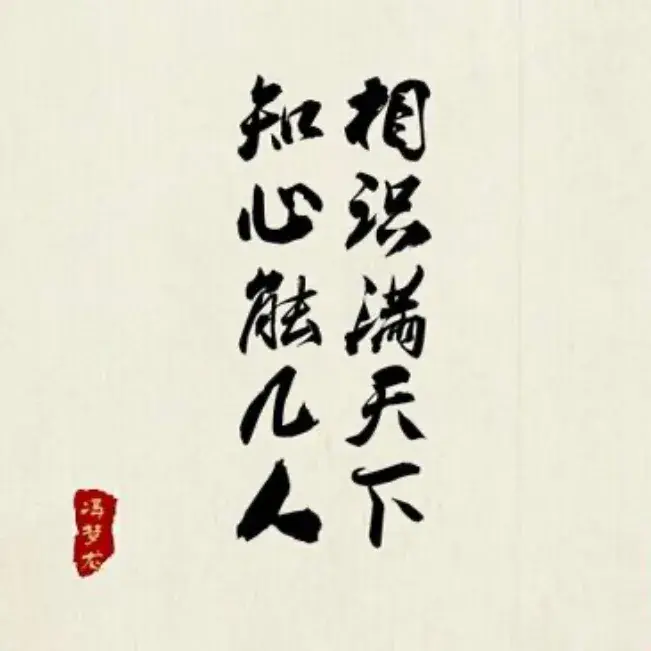 相识满天下
知心能几人
冯梦龙